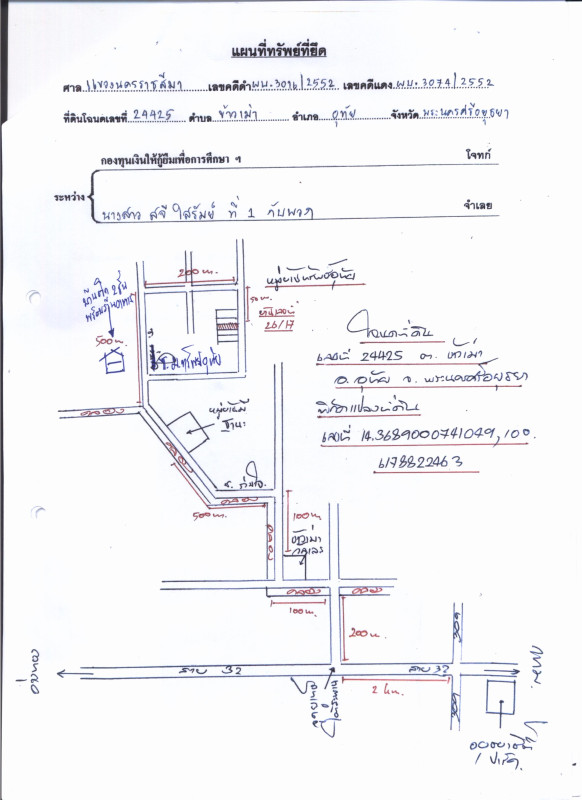 แผนที่ทรัพย์ที่ยึด
ศาล แขวงนครราชสีมา เลขคดีดำ ผบ. /2552 เลขคดีแดง ผบ. 3074/2552
ที่ดินโฉนดเลขที่ 24425 ตำบล ข้าวเม่า อำเภอ อุทัย จังหวัด พระนครศรีอยุธยา
กองทุนเงินให้กู้ยืมเพื่อการศึกษา ฯ โจทก์
ระหว่าง
นางสาว ที่ 1 กับพวก จำเลย
200 ม.
50 ม.
26/17
500 ม.
โฉนดที่ดิน
เลขที่ 24425 ต. ข้าวเม่า
อ. อุทัย จ. พระนครศรีอยุธยา
พิกัดแปลงที่ดิน
เลขที่ 14.3689000741049, 100.
678822463
คลอง
คลอง
ซ. ร่วมใจ
คลอง
500 ม.
100 ม.
คลอง
ข้าวเม่า
คลอง
คลอง
100 ม.
200 ม.
309
สาย 32
สาย 32
2 km.
309
อ่างทอง
กทม.